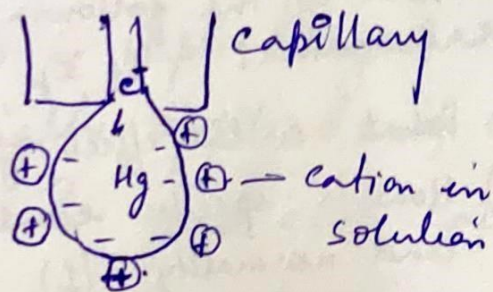 capillary
e⁻
Hg
cation in
solution